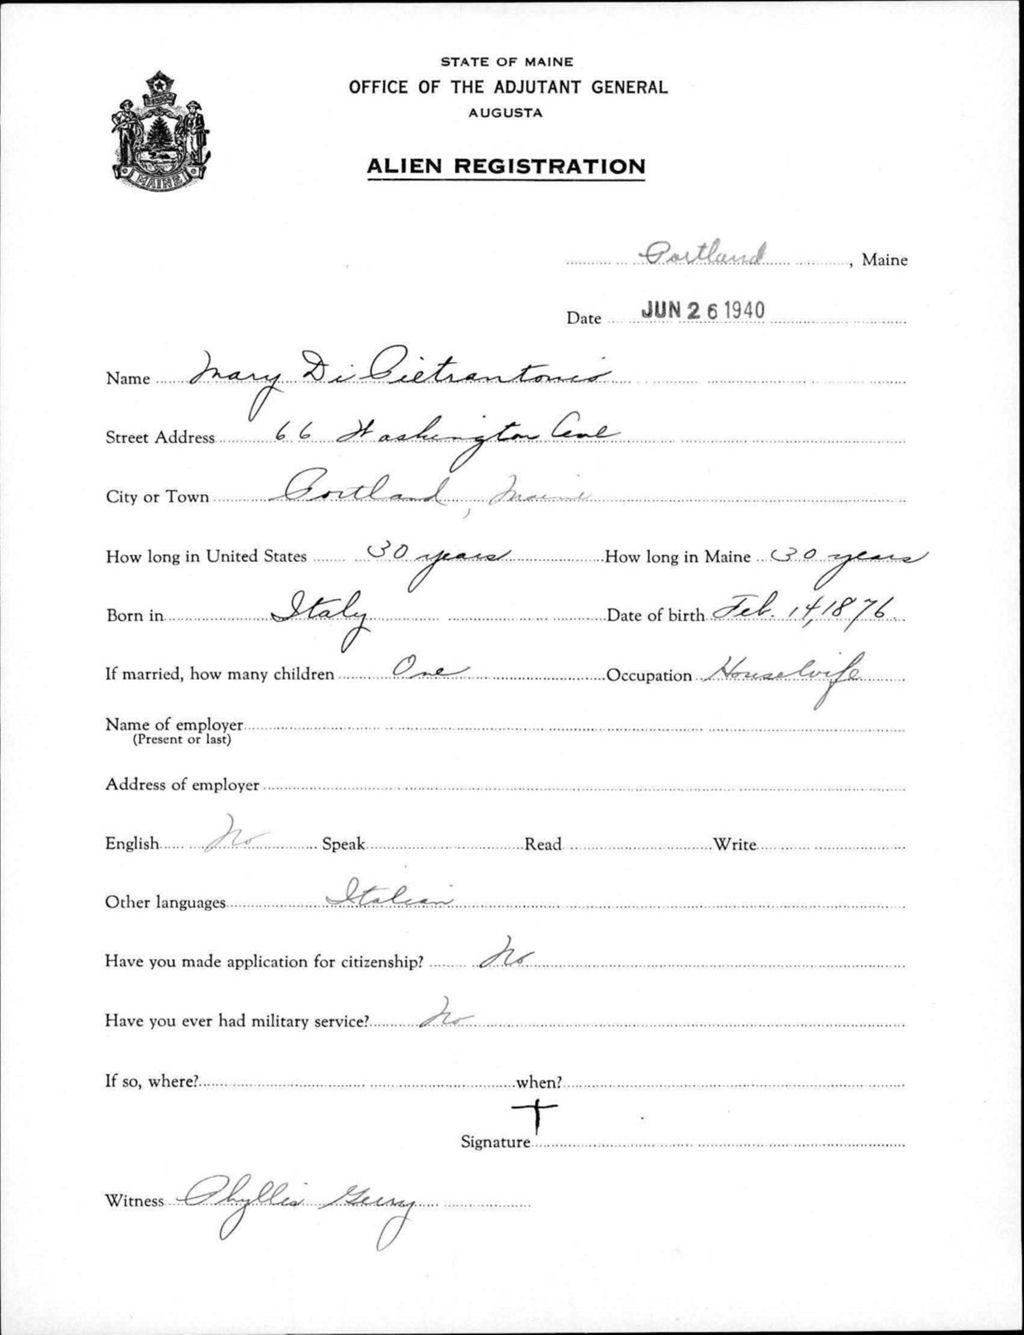 STATE OF MAINE
OFFICE OF THE ADJUTANT GENERAL
AUGUSTA
ALIEN REGISTRATION
MAINE
Portland, Maine
Date JUN 26 1940
Name Mary Di Pietrantonio
Street Address 66 Washington Ave
City or Town Portland, Maine
How long in United States 30 years How long in Maine 30 years
Born in Italy Date of birth Feb. 14, 1876.
If married, how many children One Occupation Housewife
Name of employer
(Present or last)
Address of employer
English No Speak Read Write
Other languages Italian
Have you made application for citizenship? No
Have you ever had military service? No
If so, where? when?
Signature
Witness Phyllis Gerry